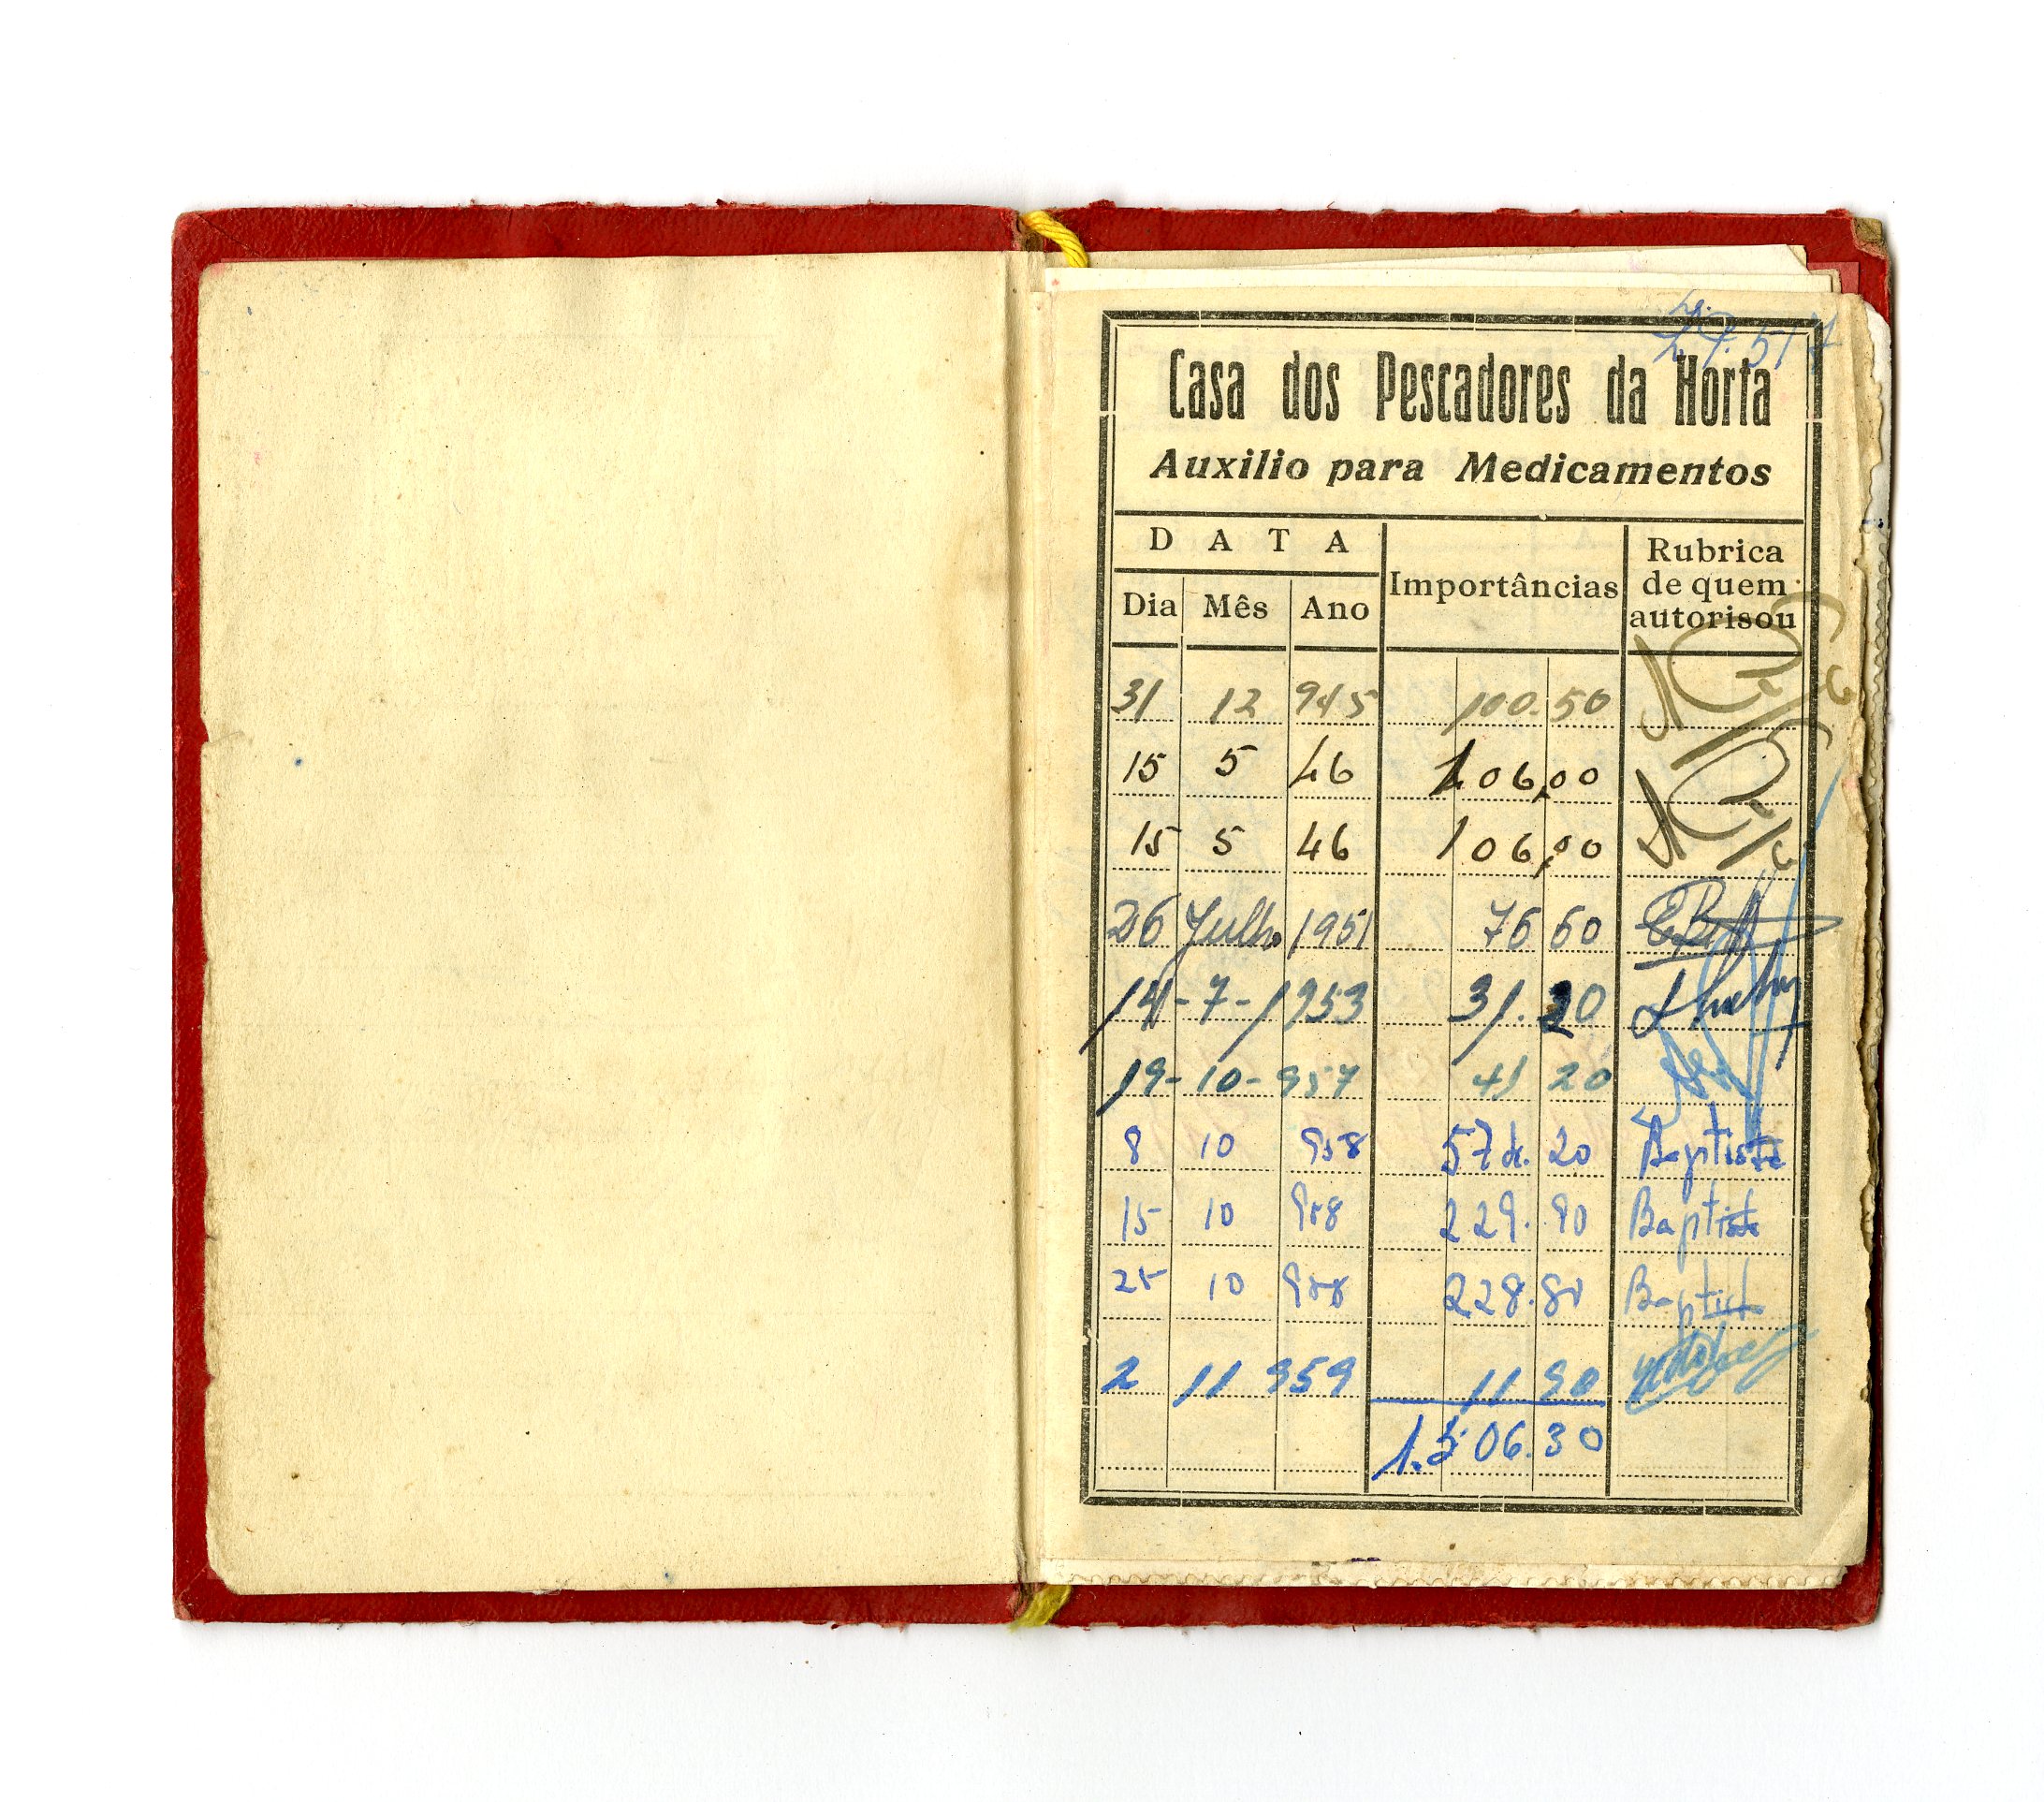 Casa dos Pescadores da Horta
Auxilio para Medicamentos
D A T A Importâncias Rubrica de quem autorisou
Dia Mês Ano
31 12 945 100.50
15 5 46 106,00
15 5 46 106,00
26 Julho 1951 76 60
14-7-1953 31.20
19-10-957 41 20
8 10 958 57 20 Baptista
15 10 958 229.90 Baptista
25 10 958 228.80 Baptista
2 11 959 11 90
06.30